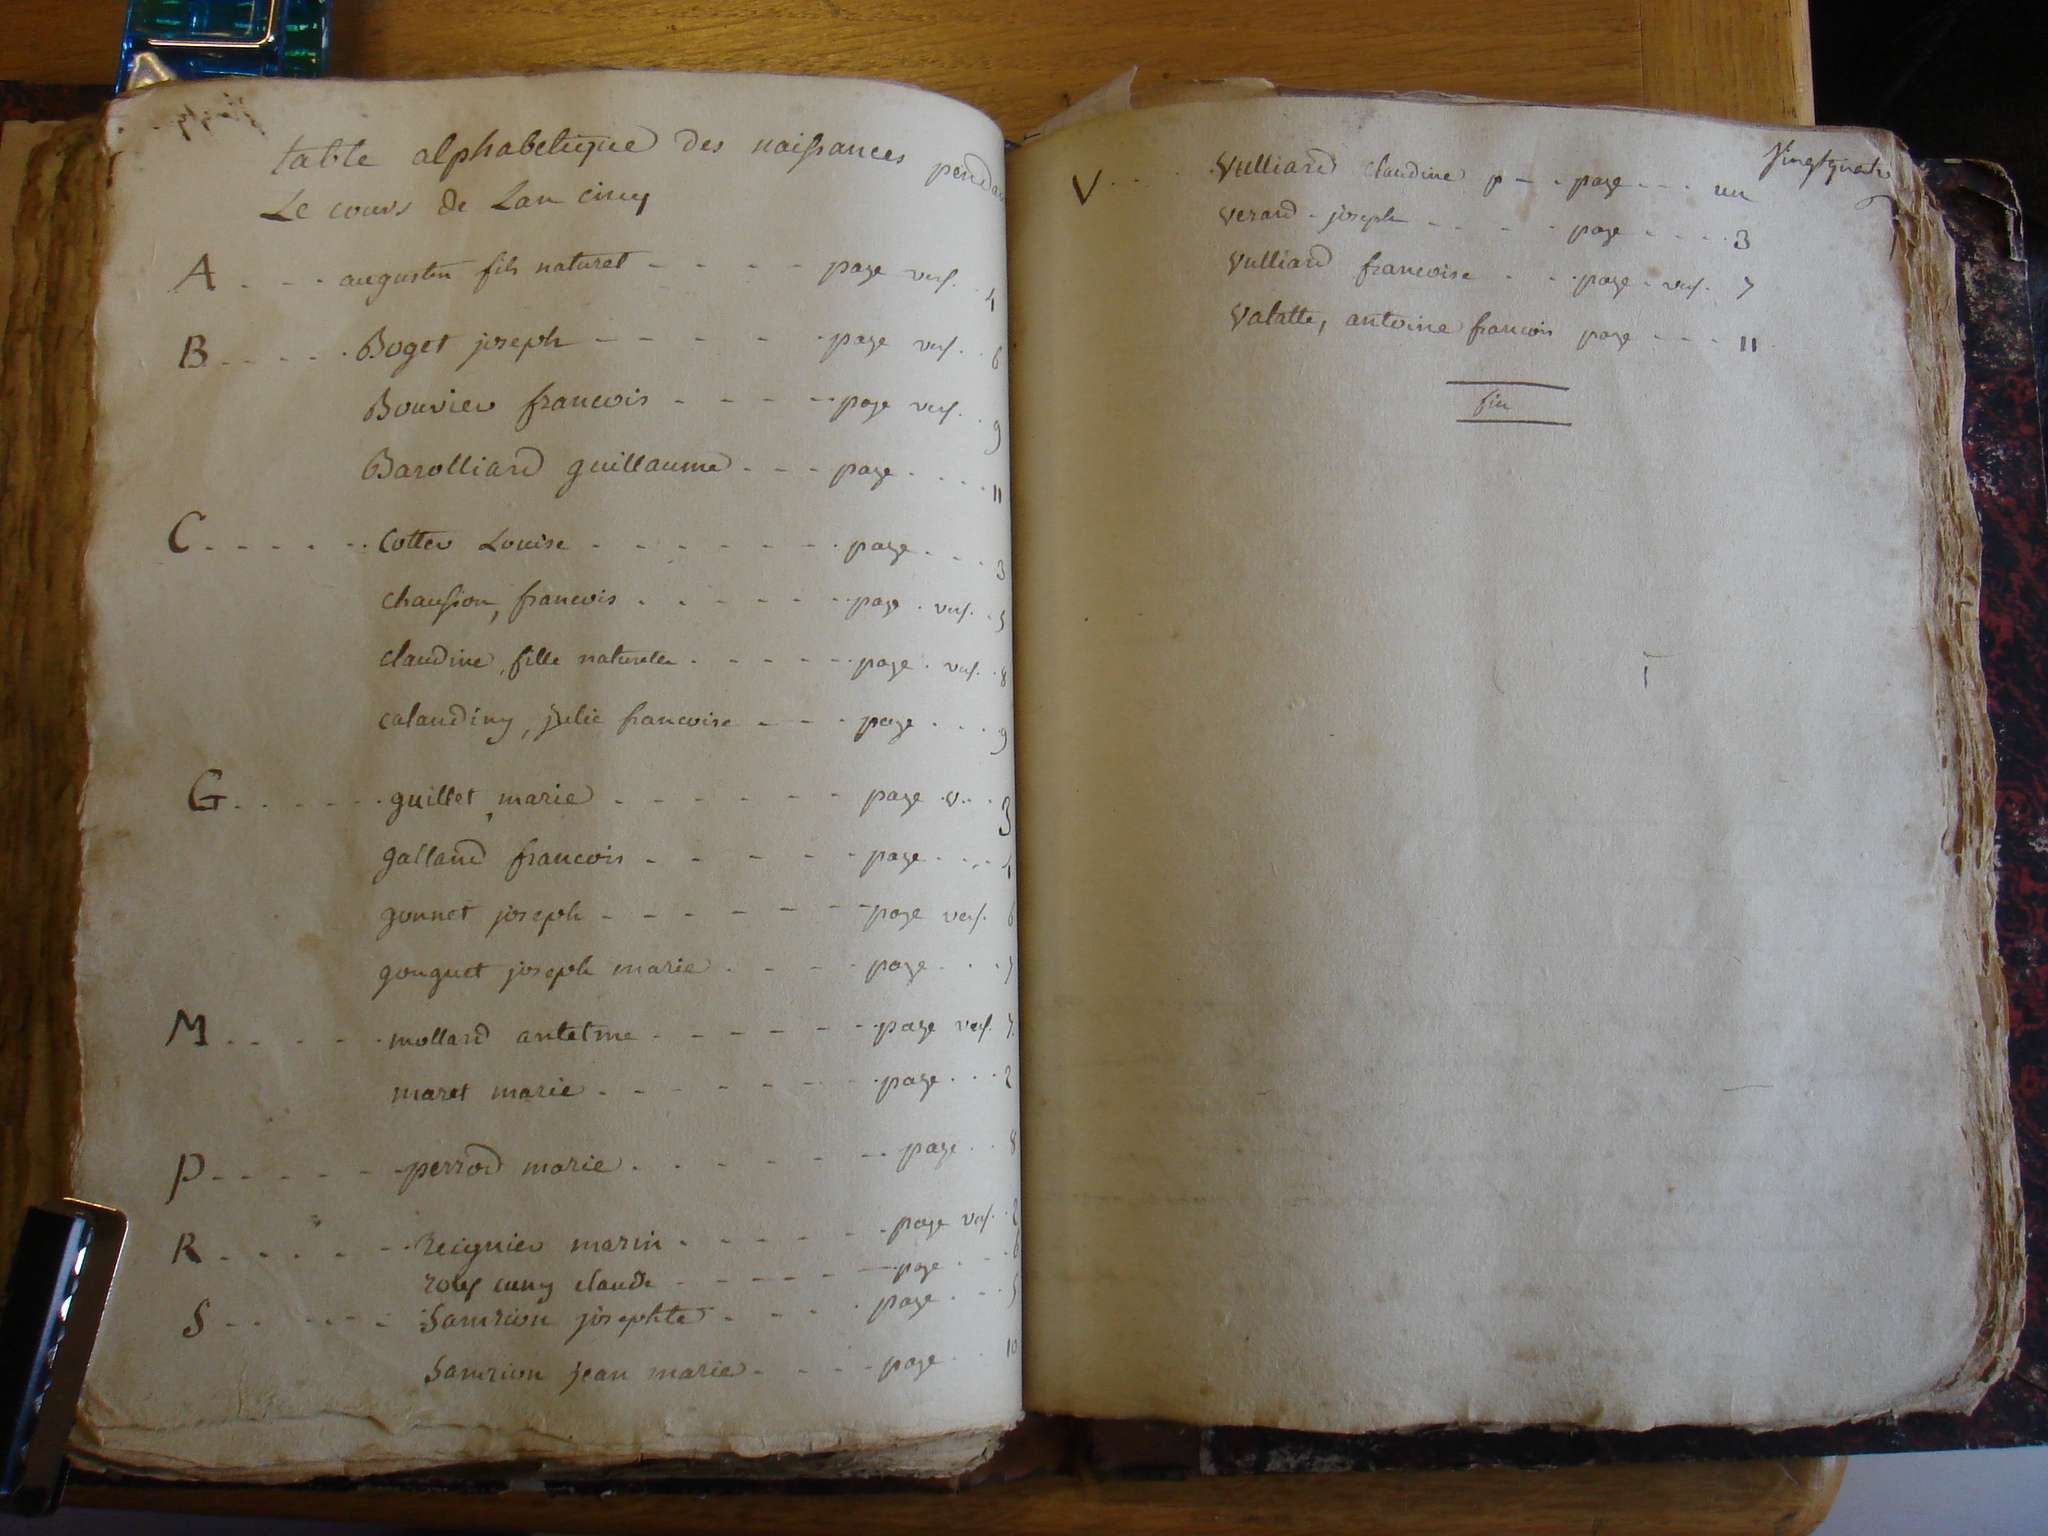 table alphabetique des naissances pendan
Le cours de Lan cinq
A augustin fils naturel page vers. 4
B Boget joseph page vers. 6
Bouvier francois page vers. 9
Barolliard guillaume page 11
C Cotter Louise page 3
chaussion, francois page vers. 5
claudine, fille naturelle page vers. 8
calandiny, julie francoise page 9
G guillet, marie page v. 3
galland francois page 4
gonnet joseph page vers. 6
gouguet joseph marie page 7
M mollard antelme page vers. 7
maret marie page 2
P perrod marie page 8
R Reignier marin page vers. 2
cuny claude page 6
S Samrion josephte page 5
Samrion jean marie page 10
vingtquatre
V Vulliard claudine p page un
Verard joseph page 3
Vulliard francoise page vers. 7
Valatte, antoine francois page 11
fin